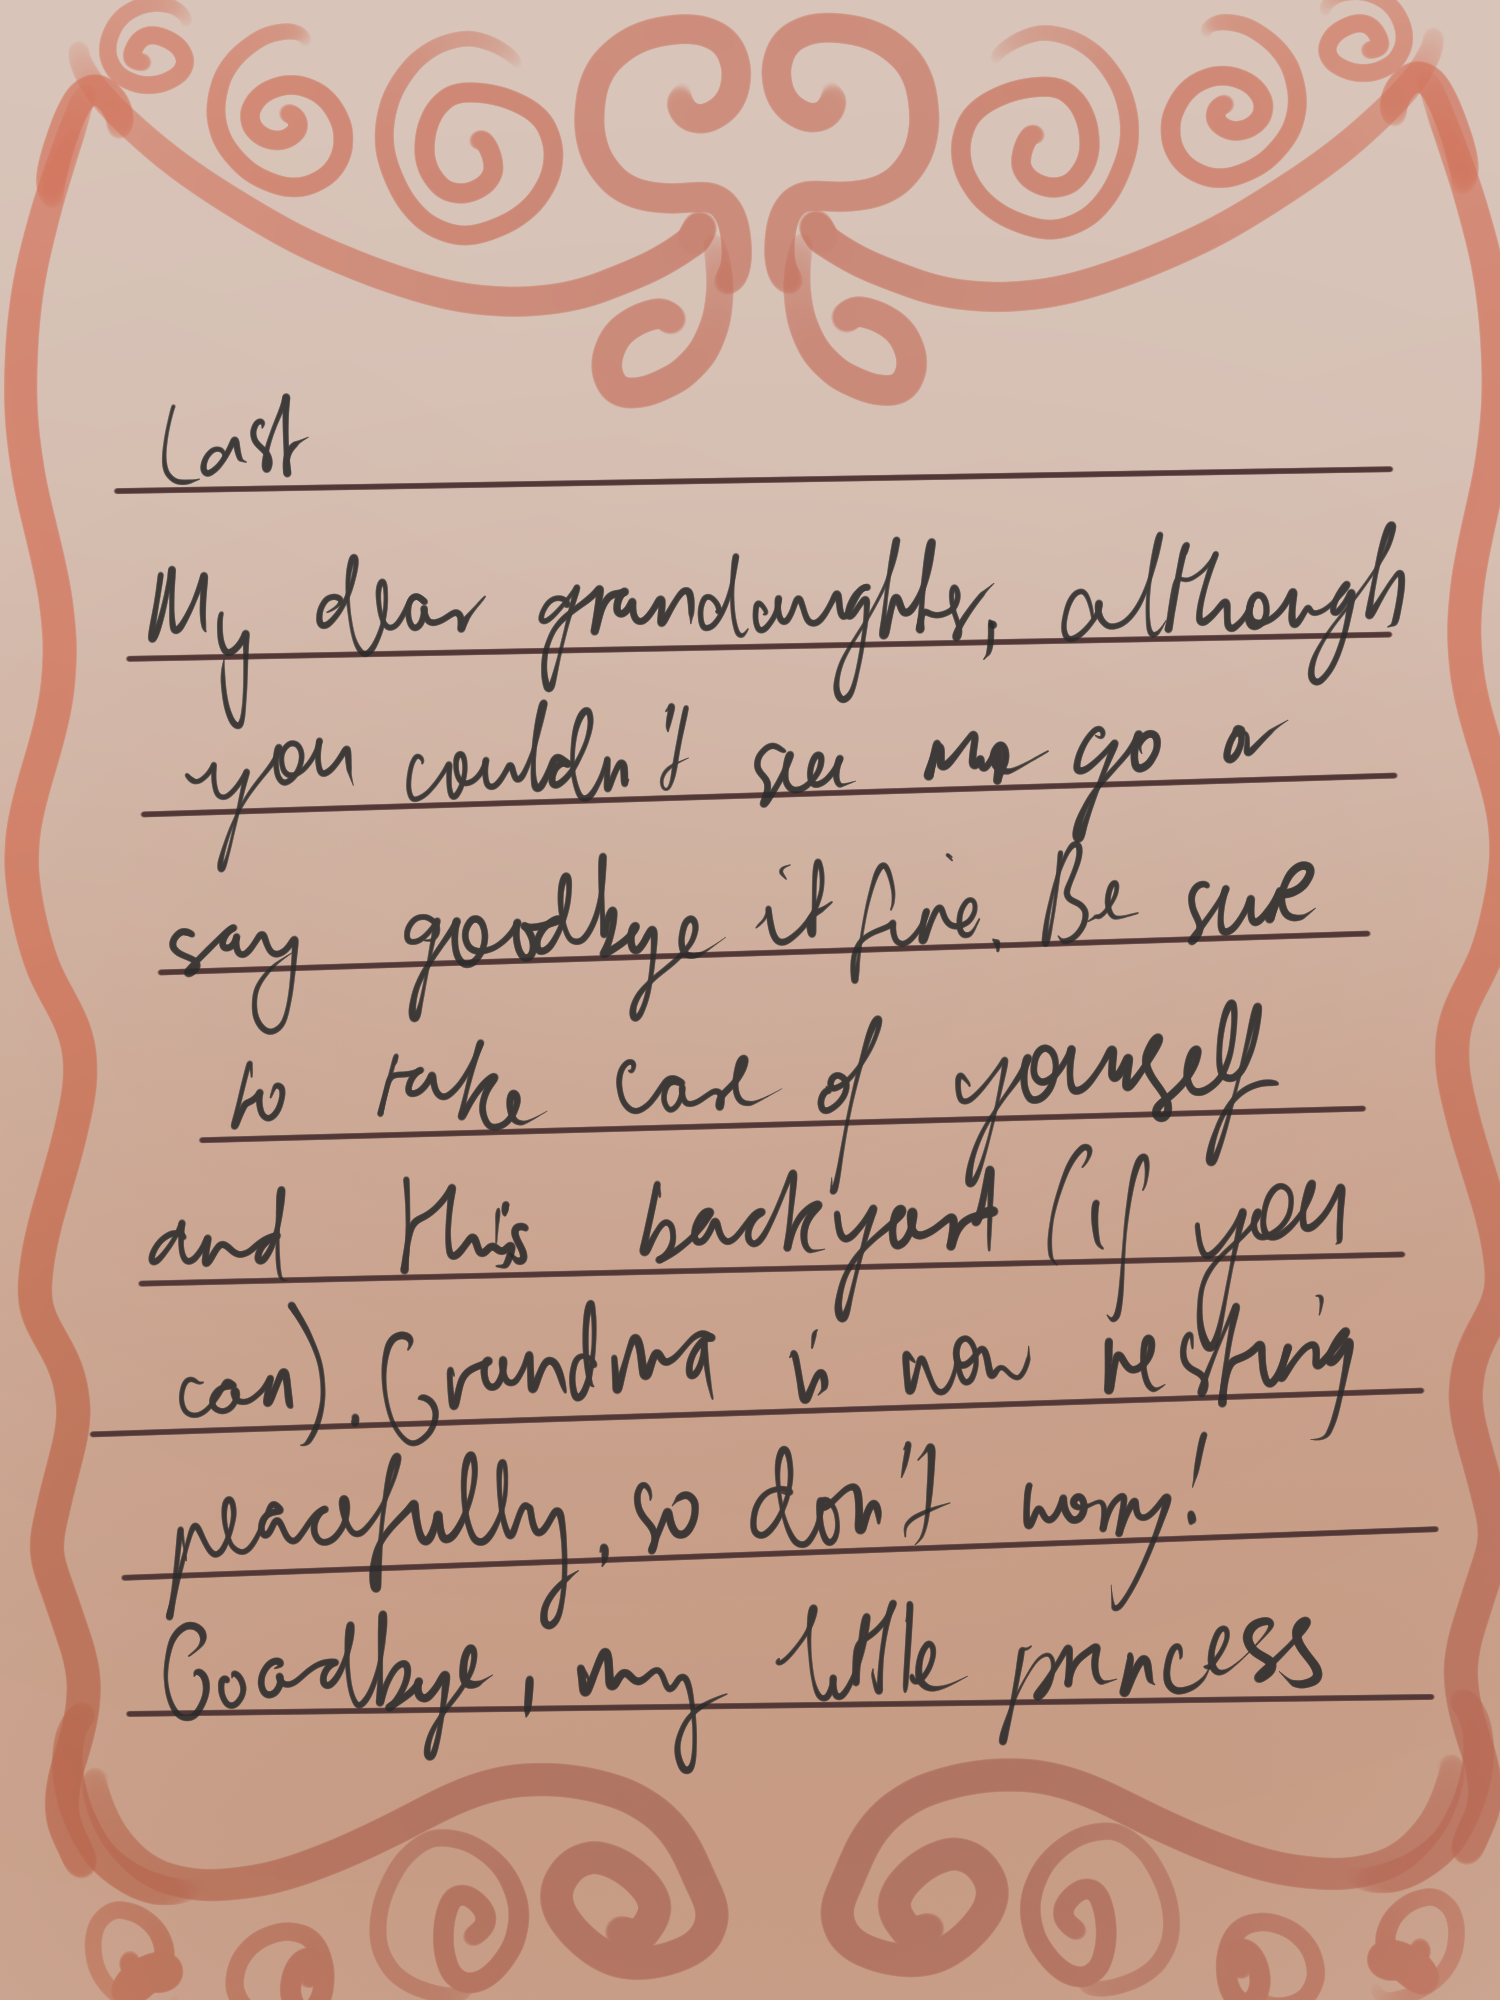 Last
My dear grandaughter, although
you couldn't see me go or
say goodbye it fine. Be sure
to take care of yourself
and this backyard (if you
can). Grandma is now resting
peacefully, so don't worry!
Goodbye, my little princess